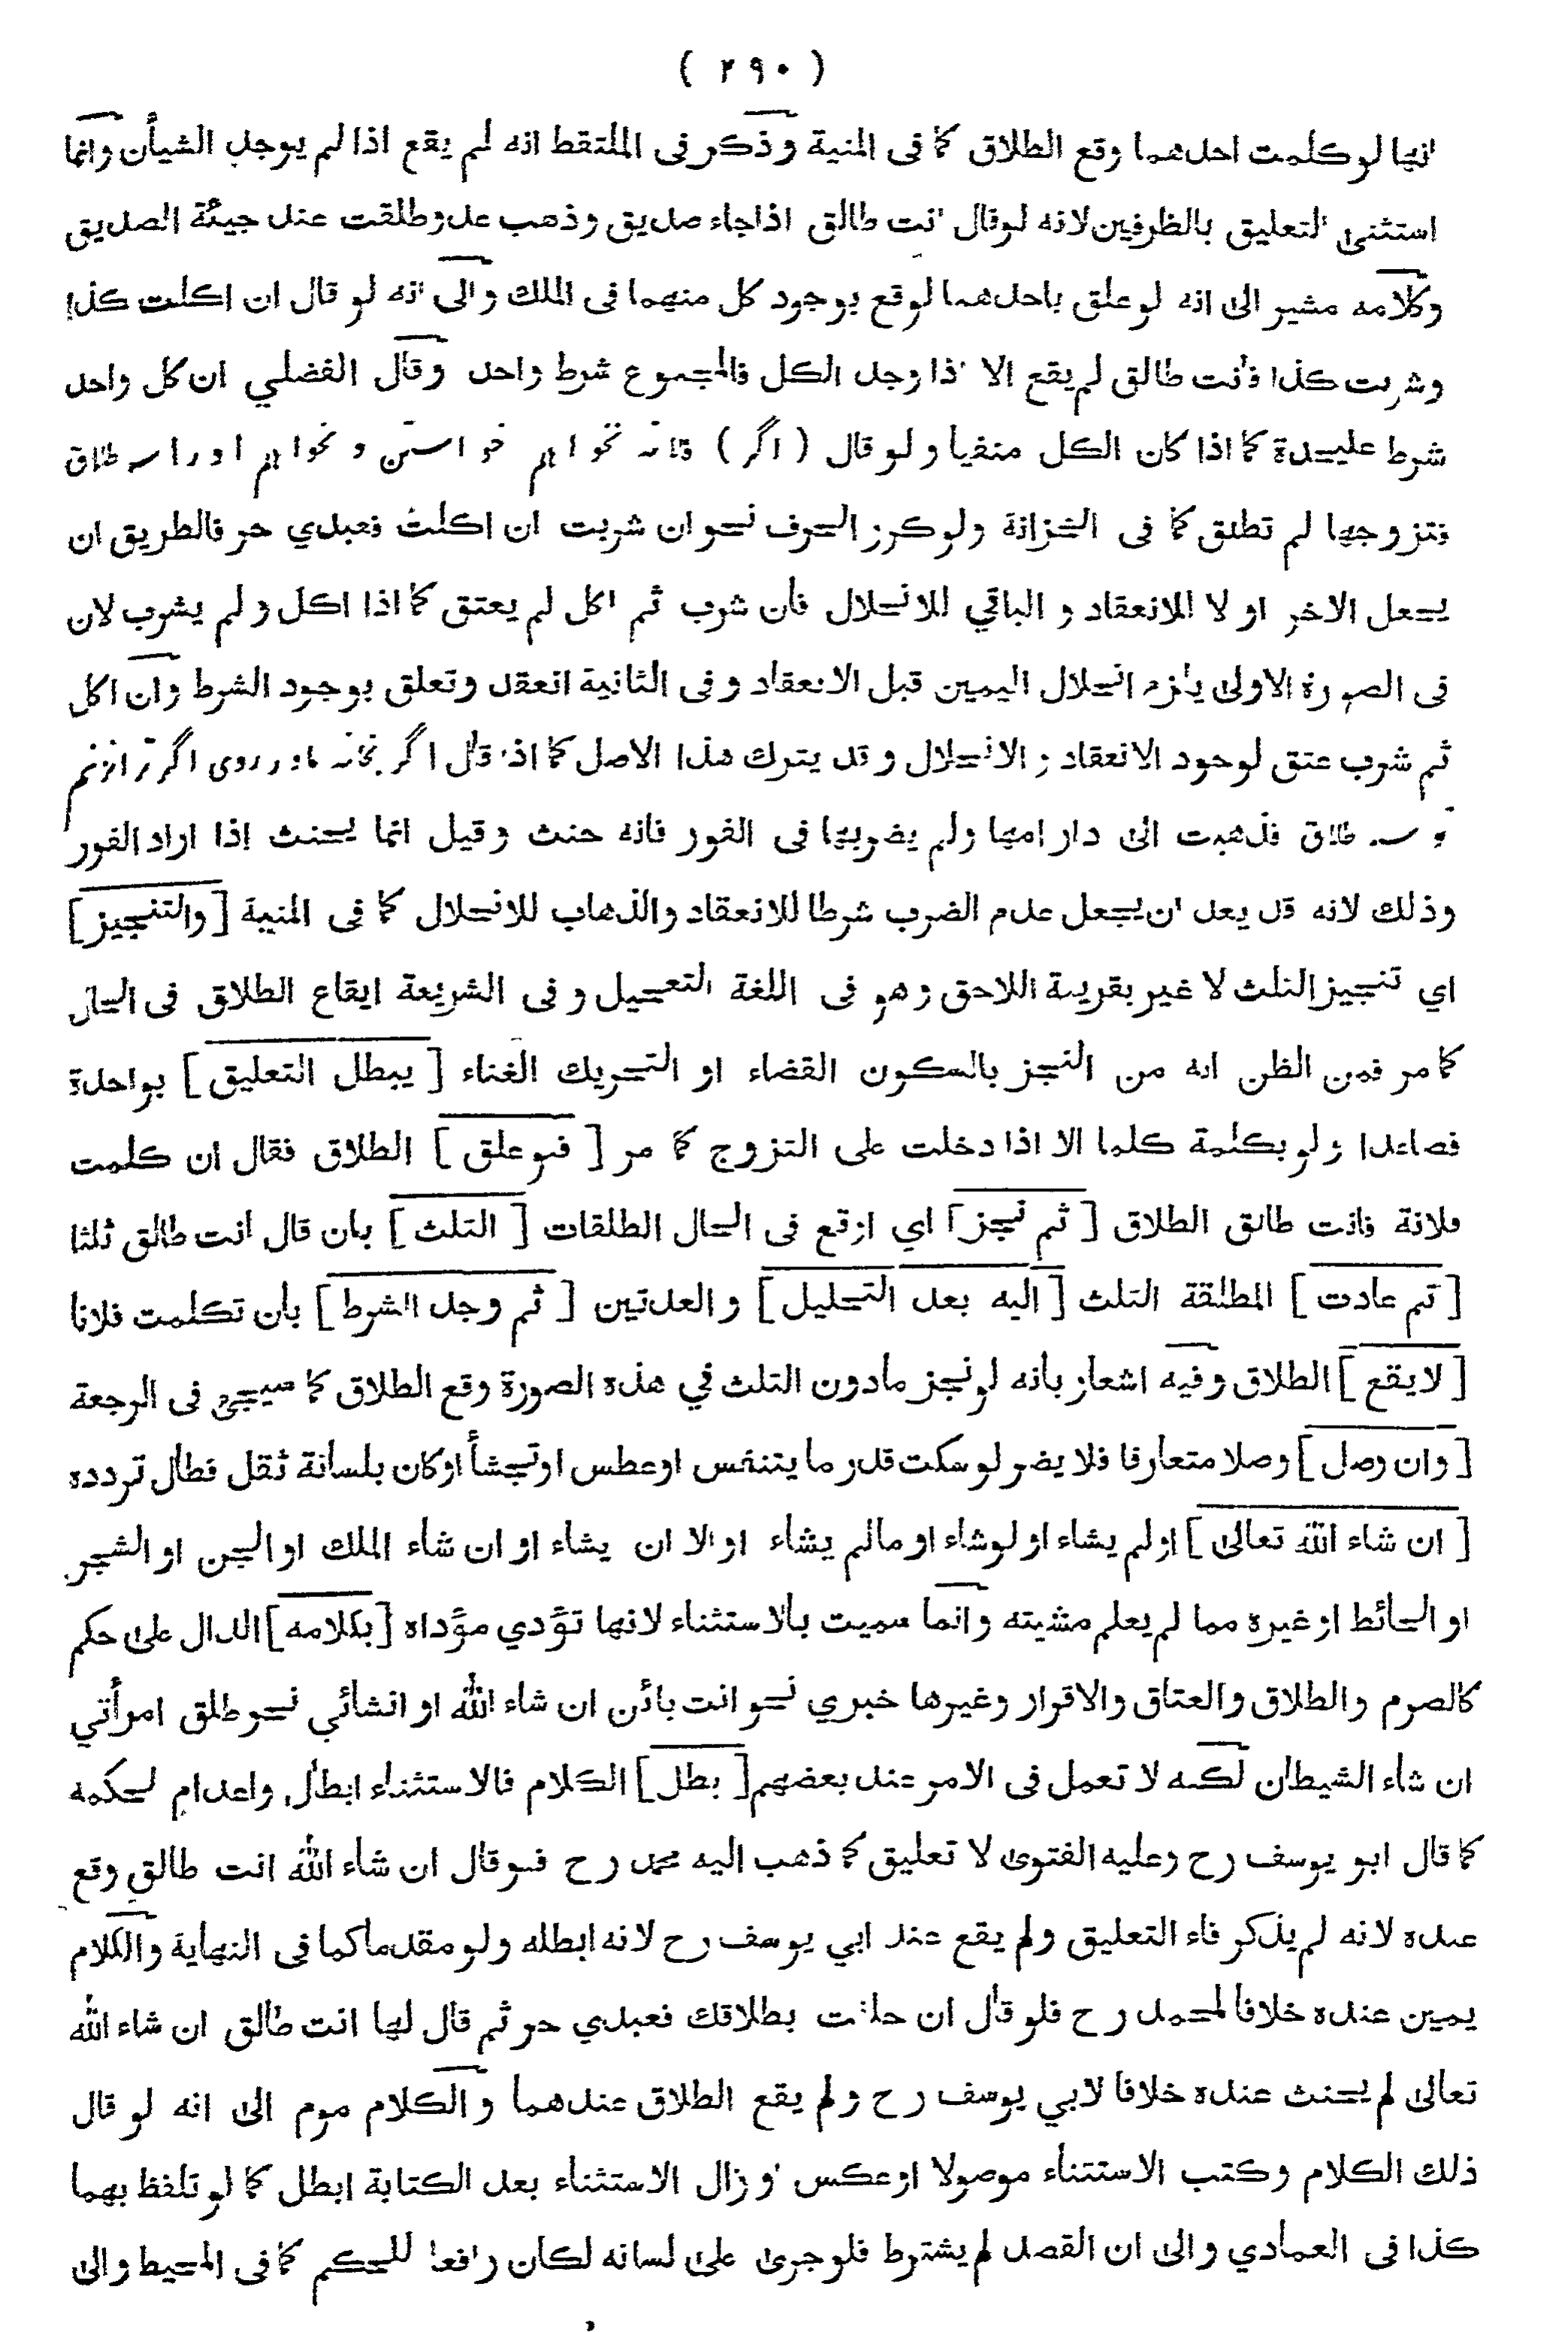 ( ٢٩٠ )
انها لو كلمت احدهما وقع الطلاق كما فى المنية وذكر فى الملتقط انه لم يقع اذا لم يوجد الشيأن وانما
استثنى التعليق بالظرفين لانه لو قال انت طالق اذا جاء صديق وذهب عدو طلقت عند جيئة الصديق
وكلامه مشير الى انه لو علق باحدهما لوقع بوجود كل منهما فى الملك والى انه لو قال ان اكلت كذا
وشربت كذا فانت طالق لم يقع الا اذا وجد الكل فالمجموع شرط واحد وقال الفضلي ان كل واحد
شرط عليحدة كما اذا كان الكل منفيا ولو قال ( اگر ) نخواهم خواستن و نخواهم اورا سه طلاق
فتزوجها لم تطلق كما فى الخزانة ولو كرر الحرف نحو ان شربت ان اكلت فعبدي حر فالطريق ان
يجعل الاخر اولا للانعقاد و الباقي للانحلال فأن شرب ثم اكل لم يعتق كما اذا اكل ولم يشرب لان
فى الصورة الاولى يلزم انحلال اليمين قبل الانعقاد وفى الثانية انعقد وتعلق بوجود الشرط وان اكل
ثم شرب عتق لوجود الانعقاد و الانحلال وقد يترك هذا الاصل كما اذا قال اگر بخانه مادر روى اگر ترا نزنم
تو سه طلاق فذهبت الى دار امها ولم يضربها فى الفور فانه حنث وقيل انما يحنث اذا اراد الفور
وذلك لانه قد يعد ان يجعل عدم الضرب شرطا للانعقاد والذهاب للانحلال كما فى المنية [ والتنجيز ]
اي تنجيز الثلث لا غير بقرينة اللاحق وهو فى اللغة التعجيل و فى الشريعة ايقاع الطلاق فى الحال
كما مر فمن الظن انه من النجز بالسكون القضاء او التحريك الفناء [ يبطل التعليق ] بواحدة
فصاعدا ولو بكلمة كلما الا اذا دخلت على التزوج كما مر [ فلو علق ] الطلاق فقال ان كلمت
فلانة فانت طالق الطلاق [ ثم نجز ] اي اوقع فى الحال الطلقات [ الثلث ] بان قال انت طالق ثلثا
[ ثم عادت ] المطلقة الثلث [ اليه بعد التحليل ] و العدتين [ ثم وجد الشرط ] بأن تكلمت فلانا
[ لا يقع ] الطلاق وفيه اشعار بأنه لو نجز مادون الثلث في هذه الصورة وقع الطلاق كما سيجئ فى الرجعة
[ وان وصل ] وصلا متعارفا فلا يضر لو سكت قدر ما يتنفس او عطس او تجشأ او كان بلسانة ثقل فطال تردده
[ ان شاء الله تعالى ] او لم يشاء او لو شاء او مالم يشاء او الا ان يشاء او ان شاء الملك او الجن او الشجر
او الحائط او غيره مما لم يعلم مشيته وانما سميت بالاستثناء لانها تؤدي مؤداه [ بكلامه ] الدال على حكم
كالصرم والطلاق والعتاق والاقرار وغيرها خبري نحو انت بائن ان شاء الله او انشائي نحو طلق امرأتي
ان شاء الشيطان لكنه لا تعمل فى الامر عند بعضهم [ بطل ] الكلام فالاستثناء ابطال واعدام لحكمه
كما قال ابو يوسف رح وعليه الفتوى لا تعليق كما ذهب اليه محمد رح فلو قال ان شاء الله انت طالق وقع
عنده لانه لم يذكر فاء التعليق ولم يقع عند ابي يوسف رح لانه ابطله ولو مقدما كما فى النهاية والكلام
يمين عنده خلافا لمحمد رح فلو قال ان حلفت بطلاقك فعبدي حر ثم قال لها انت طالق ان شاء الله
تعالى لم يحنث عنده خلافا لابي يوسف رح ولم يقع الطلاق عندهما والكلام موم الى انه لو قال
ذلك الكلام وكتب الاستثناء موصولا او عكس او زال الاستثناء بعد الكتابة ابطل كما لو تلفظ بهما
كذا فى العمادي والى ان القصد لم يشترط فلو جرى على لسانه لكان رافعا للحكم كما فى المحيط والى